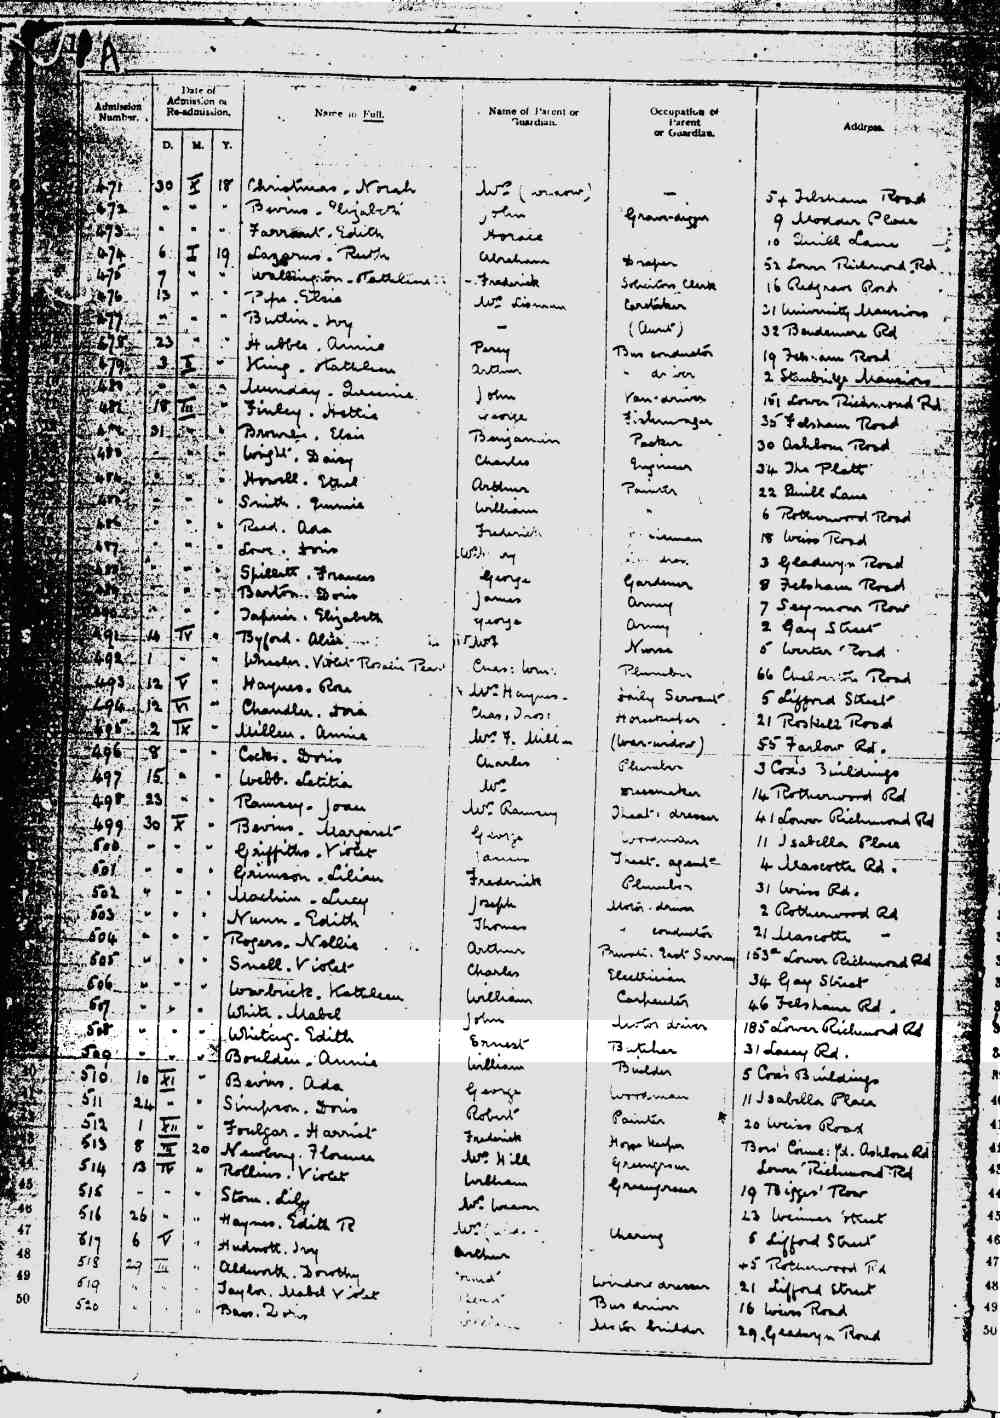 A
Admission Number. Date of Admission or Re-admission. Name in Full. Name of Parent or Guardian. Occupation of Parent or Guardian. Address.
D. M. Y.
471 30 X 18 Christmas. Norah Mrs (widow) — 54 Felsham Road
472 " " " Bevins. Elizabeth John Grave-digger 9 Modder Place
473 " " " Farrant. Edith Horace 10 Quill Lane
474 6 I 19 Lazarus. Ruth Abraham Draper 52 Lower Richmond Rd
475 7 " " Wallington. Kathleen Frederick Solicitors Clerk 16 Redgrave Road
476 13 " " Pipe. Elsie Mrs Caretaker 31 University Mansions
477 " " " Butlin. Ivy — (Aunt) 32 Bendemere Rd
478 23 " " Hubble. Annie Percy Bus conductor 19 Felsham Road
479 3 " King. Kathleen Arthur " driver 2 Stanbridge Mansions
480 " " " Munday. Queenie John Van-driver 151 Lower Richmond Rd
481 18 III " Finley. Hettie George Fishmonger 35 Felsham Road
482 31 " " Elsie Benjamin Packer 30 Ashlone Road
483 " " " Wright. Daisy Charles Engineer 34 The Platt
484 " " " Howell. Ethel Arthur Painter 22 Quill Lane
485 " " " Smith. William " 6 Rotherwood Road
486 " " " Read. Ada Frederick 18 Weiss Road
487 " " " Love. Doris 3 Gladwyn Road
488 " " " Spillett. Frances George Gardener 8 Felsham Road
489 " " " Barton. Doris James Army 7 Seymour Row
490 " " " Elizabeth George Army 2 Gay Street
491 14 IV " Byford. Alice Mrs Nurse 5 Road
492 1 " " Wheeler. Violet Rosina Pearl Chas: Wm: Plumber 66 Chelverton Road
493 12 V " Haynes. Rose Mrs Haynes. Daily Servant 5 Lifford Street
494 12 VI " Chandler. Dora Chas, Thos: Horsekeeper 21 Roskell Road
495 2 IX " Millen. Annie Mrs F. Millen (War-widow) 55 Farlow Rd.
496 8 " " Cocks. Doris Charles Plumber 3 Cox's Buildings
497 15 " " Webb. Letitia Mrs Dressmaker 14 Rotherwood Rd
498 23 " " Ramsey. Joan Mrs Ramsey Theat. dresser 41 Lower Richmond Rd
499 30 X " Bevins. Margaret George Woodman 11 Isabella Place
500 " " " Griffiths. Violet James Theat. agent 4 Mascotte Rd.
501 " " " Grimson. Lilian Frederick Plumber 31 Weiss Rd.
502 " " " Machin. Lucy Joseph Motor-driver 2 Rotherwood Rd
503 " " " Nunn. Edith Thomas " conductor 21 Mascotte "
504 " " " Rogers. Nellie Arthur Private East Surrey 153a Lower Richmond Rd
505 " " " Snell. Violet Charles Electrician 34 Gay Street
506 " " " Warbrick. Kathleen William Carpenter 46 Felsham Rd.
507 " " " White. Mabel John Motor driver 185 Lower Richmond Rd
508 " " " Whiting. Edith Ernest Butcher 31 Lacey Rd.
509 " " " Boulden. Annie William Builder 5 Cox's Buildings
510 10 XI " Bevins. Ada George Woodman 11 Isabella Place
511 24 " " Simpson. Doris Robert Painter 20 Weiss Road
512 1 XII " Foulgar. Harriet Frederick Horse keeper Ashlone Rd
513 8 II 20 Newberry. Florence Mrs Hill Greengrocer Lower Richmond Rd
514 13 IV " Rollins. Violet William Greengrocer 19 Biggs' Row
515 " " " Stone. Lily Mrs 23 Weimar Street
516 26 " " Haynes. Edith R Mrs Charing 5 Lifford Street
517 6 V " Hudnott. Ivy Arthur 45 Rotherwood Rd
518 29 III " Aldworth. Dorothy Window dresser 21 Lifford Street
519 " " " Taylor. Mabel Violet Bus driver 16 Weiss Road
520 " " " Bass. Doris Motor builder 29 Gladwyn Road